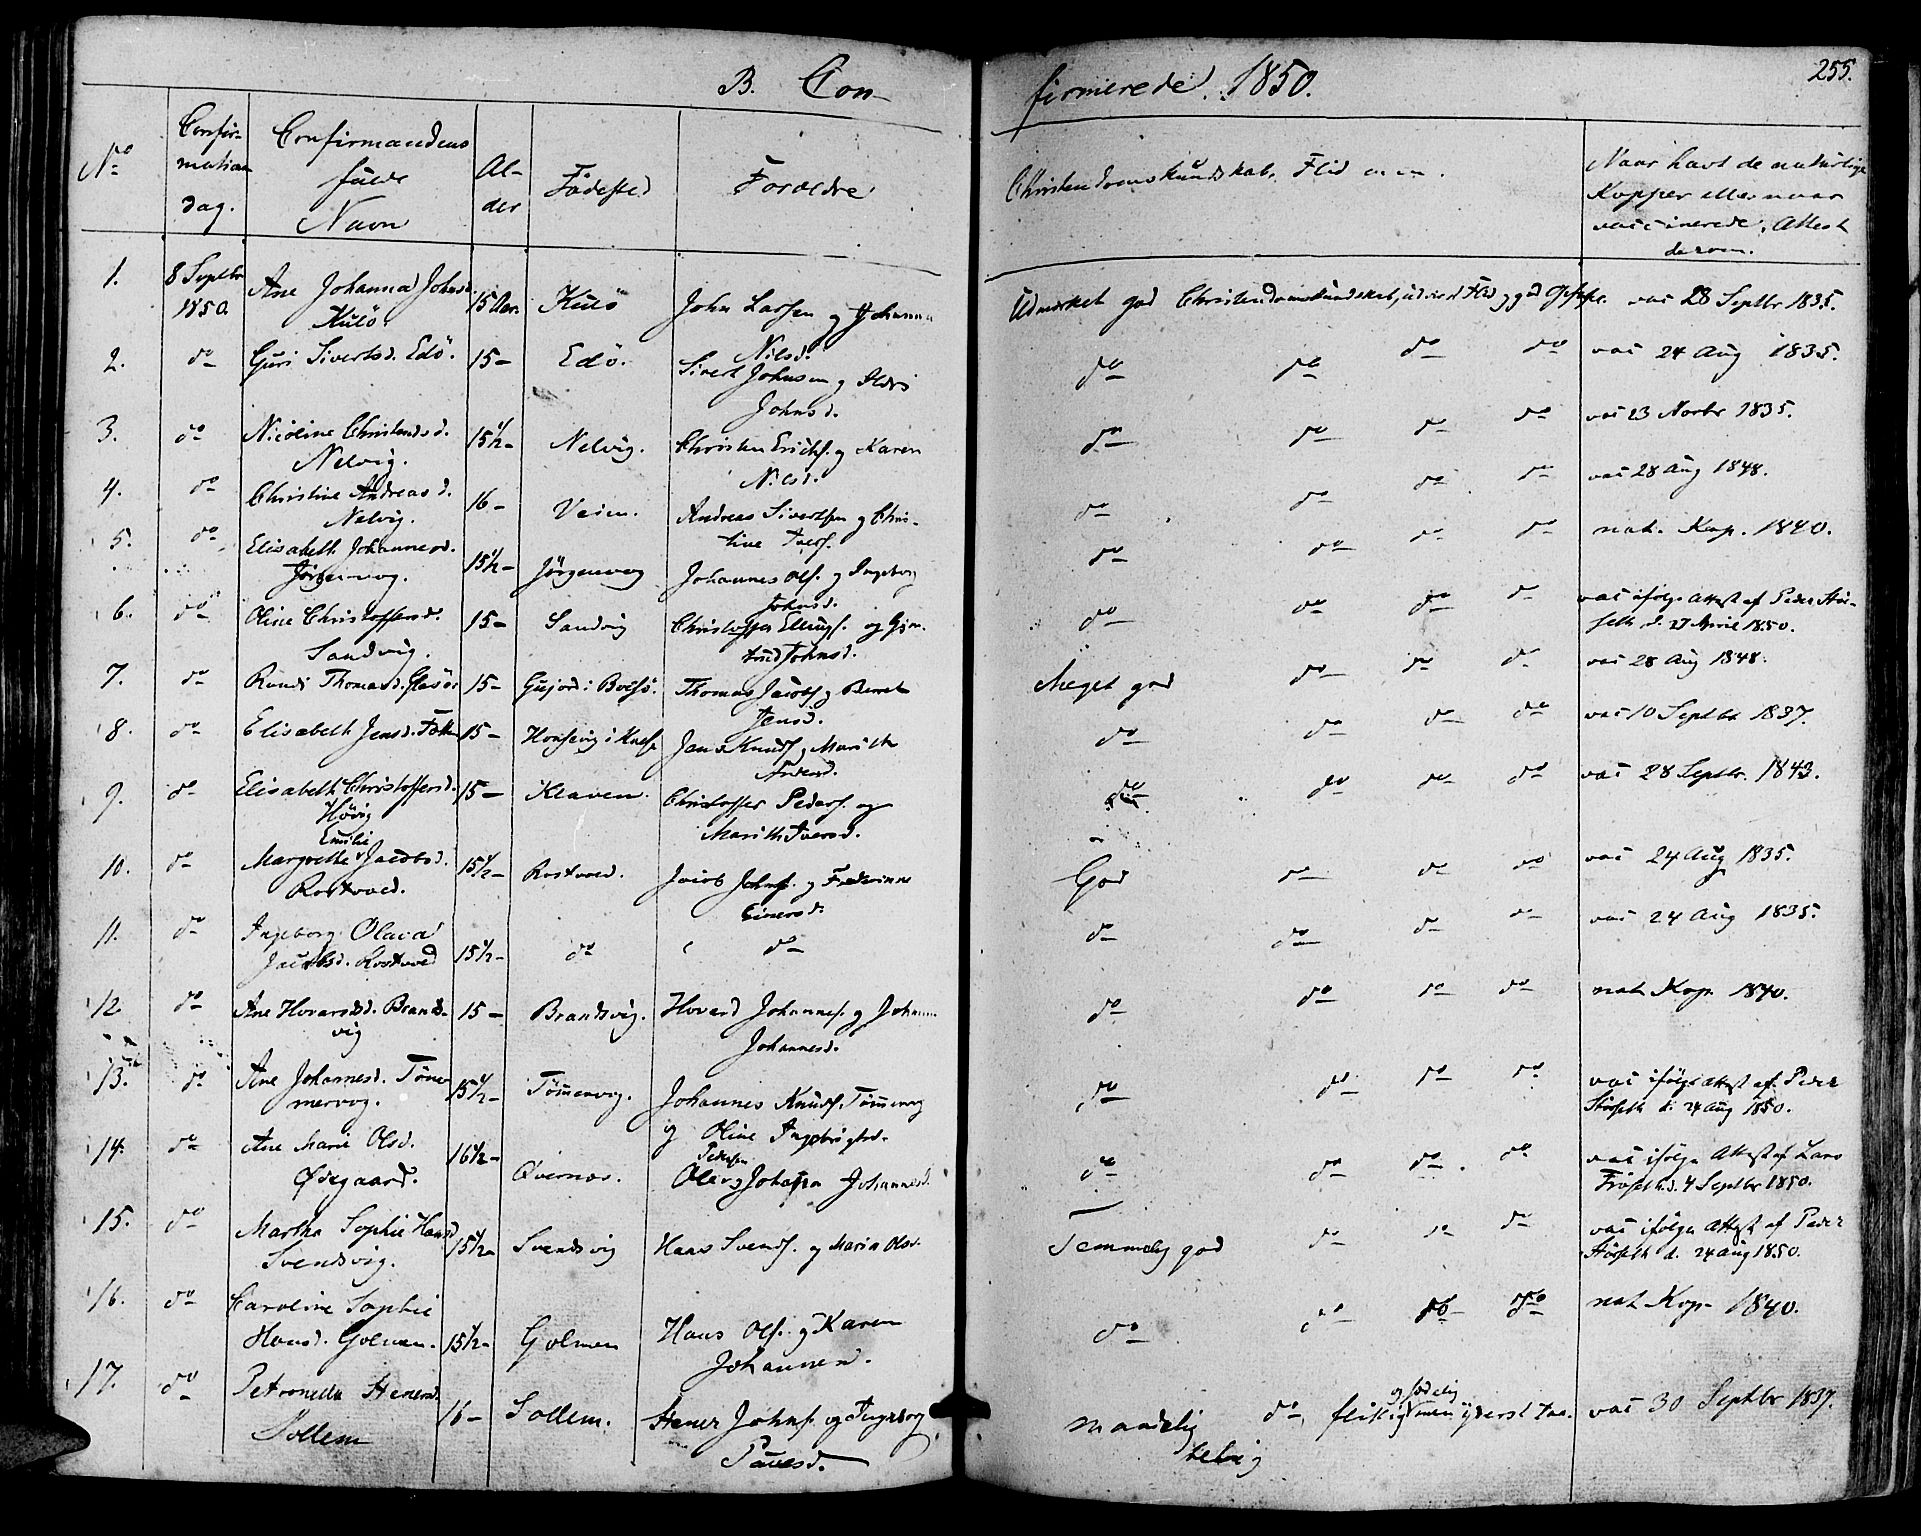 B. Con-
firmerede. 1850.
255.
No
Confir-
mations
dag.
Confirmandens
fulde
Navn
Al-
der
Fødested
Forældre
Christendomskundskab, Flid m.m.
Naar havt de naturlige
Kopper eller naar
vaccinerede, Attest
derom.
1. 8 Septbr 1850. Ane Johanna Johnsd. Kulö. 15 Aar. Kulö John Larsen og Johanna Nilsd. Udmærket god Christendomskundskab, udviist Flid og god vac 28 Septbr 1835.
2. do Guri Sivertsd. Edö. 15- Edö. Sivert Johnsen og Ildri Johnsd. do do do do vac 24 Aug 1835.
3. do Nicoline Christensd. Nelvig. 15½- Nelvig. Christen Erichs. og Karen Nilsd. do do do do vac 23 Novbr 1835.
4. do Christine Andreasd. Nelvig. 16- Veien. Andreas Sivertsen og Chri-
stine Ivers. do do do do vac 28 Aug 1848.
5. do Elisabeth Johannesd. Jörgenvog. 15½- Jörgenvog Johannes Ols. og Ingeborg Johnsd. do do do do nat. Kop. 1840.
6. do Oline Christoffersd. Sandvig. 15- Sandvig Christoffer Ellings. og Gjer-
trud Johnsd. do do do do vac ifølge Attest af Peder Stör-
seth d. 27 April 1850.
7. do Randi Thomasd. Glasöe 15- i Boesö. Thomas Jacobs. og Beret Jensd. Meget god do do do vac 28 Aug 1848.
8. do Elisabeth Jensd. 15- Jens Knuds. og Marith do do do do vac 10 Septbr 1837.
9. do Elisabeth Christoffersd. Hövig 15- Klaven. Christoffer Peders. og
Marith Iversd. do do do do vac 28 Septbr. 1843.
10. do Margrethe Emilie Jacobsd.
Rostvoed. 15½- Rostvoed. Jacob Johns. og Frederikke
Einersd. God do do do vac 24 Aug 1835.
11. do Ingeborg Olava
Jacobsd. Rostvoed 15½- do do do do do do vac 24 Aug 1835.
12 do Ane Hovardsd. Brands-
vig 15- Brandsvig. Hovard Johannes. og Johanna
Johannesd. do do do do nat Kop 1840.
13. do Ane Johannesd. Tömer-
mervog. 15½- Tömervig. Johannes Knuds. Tömervog
og Oline Ingebrigtsd. do do do do vac ifølge Attest af Peder
Störseth d. 24 Aug 1850.
14. do Ane Marie Olsd.
Ødegaard. 16½- Øvernæs. Ole Pedersen og Johanna Johannesd. do do do do vac ifølge Attest af Lars
Fröseth d. 4 Septbr 1850.
15. do Martha Sophie Hansd
Svendsvig. 15½- Svendsvig Hans Svends. og Maria Olsd. Temmelig god do do do vac ifølge Attest af Peder
Störseth d. 24 Aug 1850.
16. do Caroline Sophie
Hansd. Golmen. 15½- Golmen Hans Ols. og Karen
Johannesd. do do do do nat Kop 1840.
17. do Petronella Stenersd.
Sollem 16- Sollem. Stener Johns. og Ingeborg
Paulsd. maadelig do, flittig og sædelig men yderst tun-
nem vac 30 Septbr 1837.